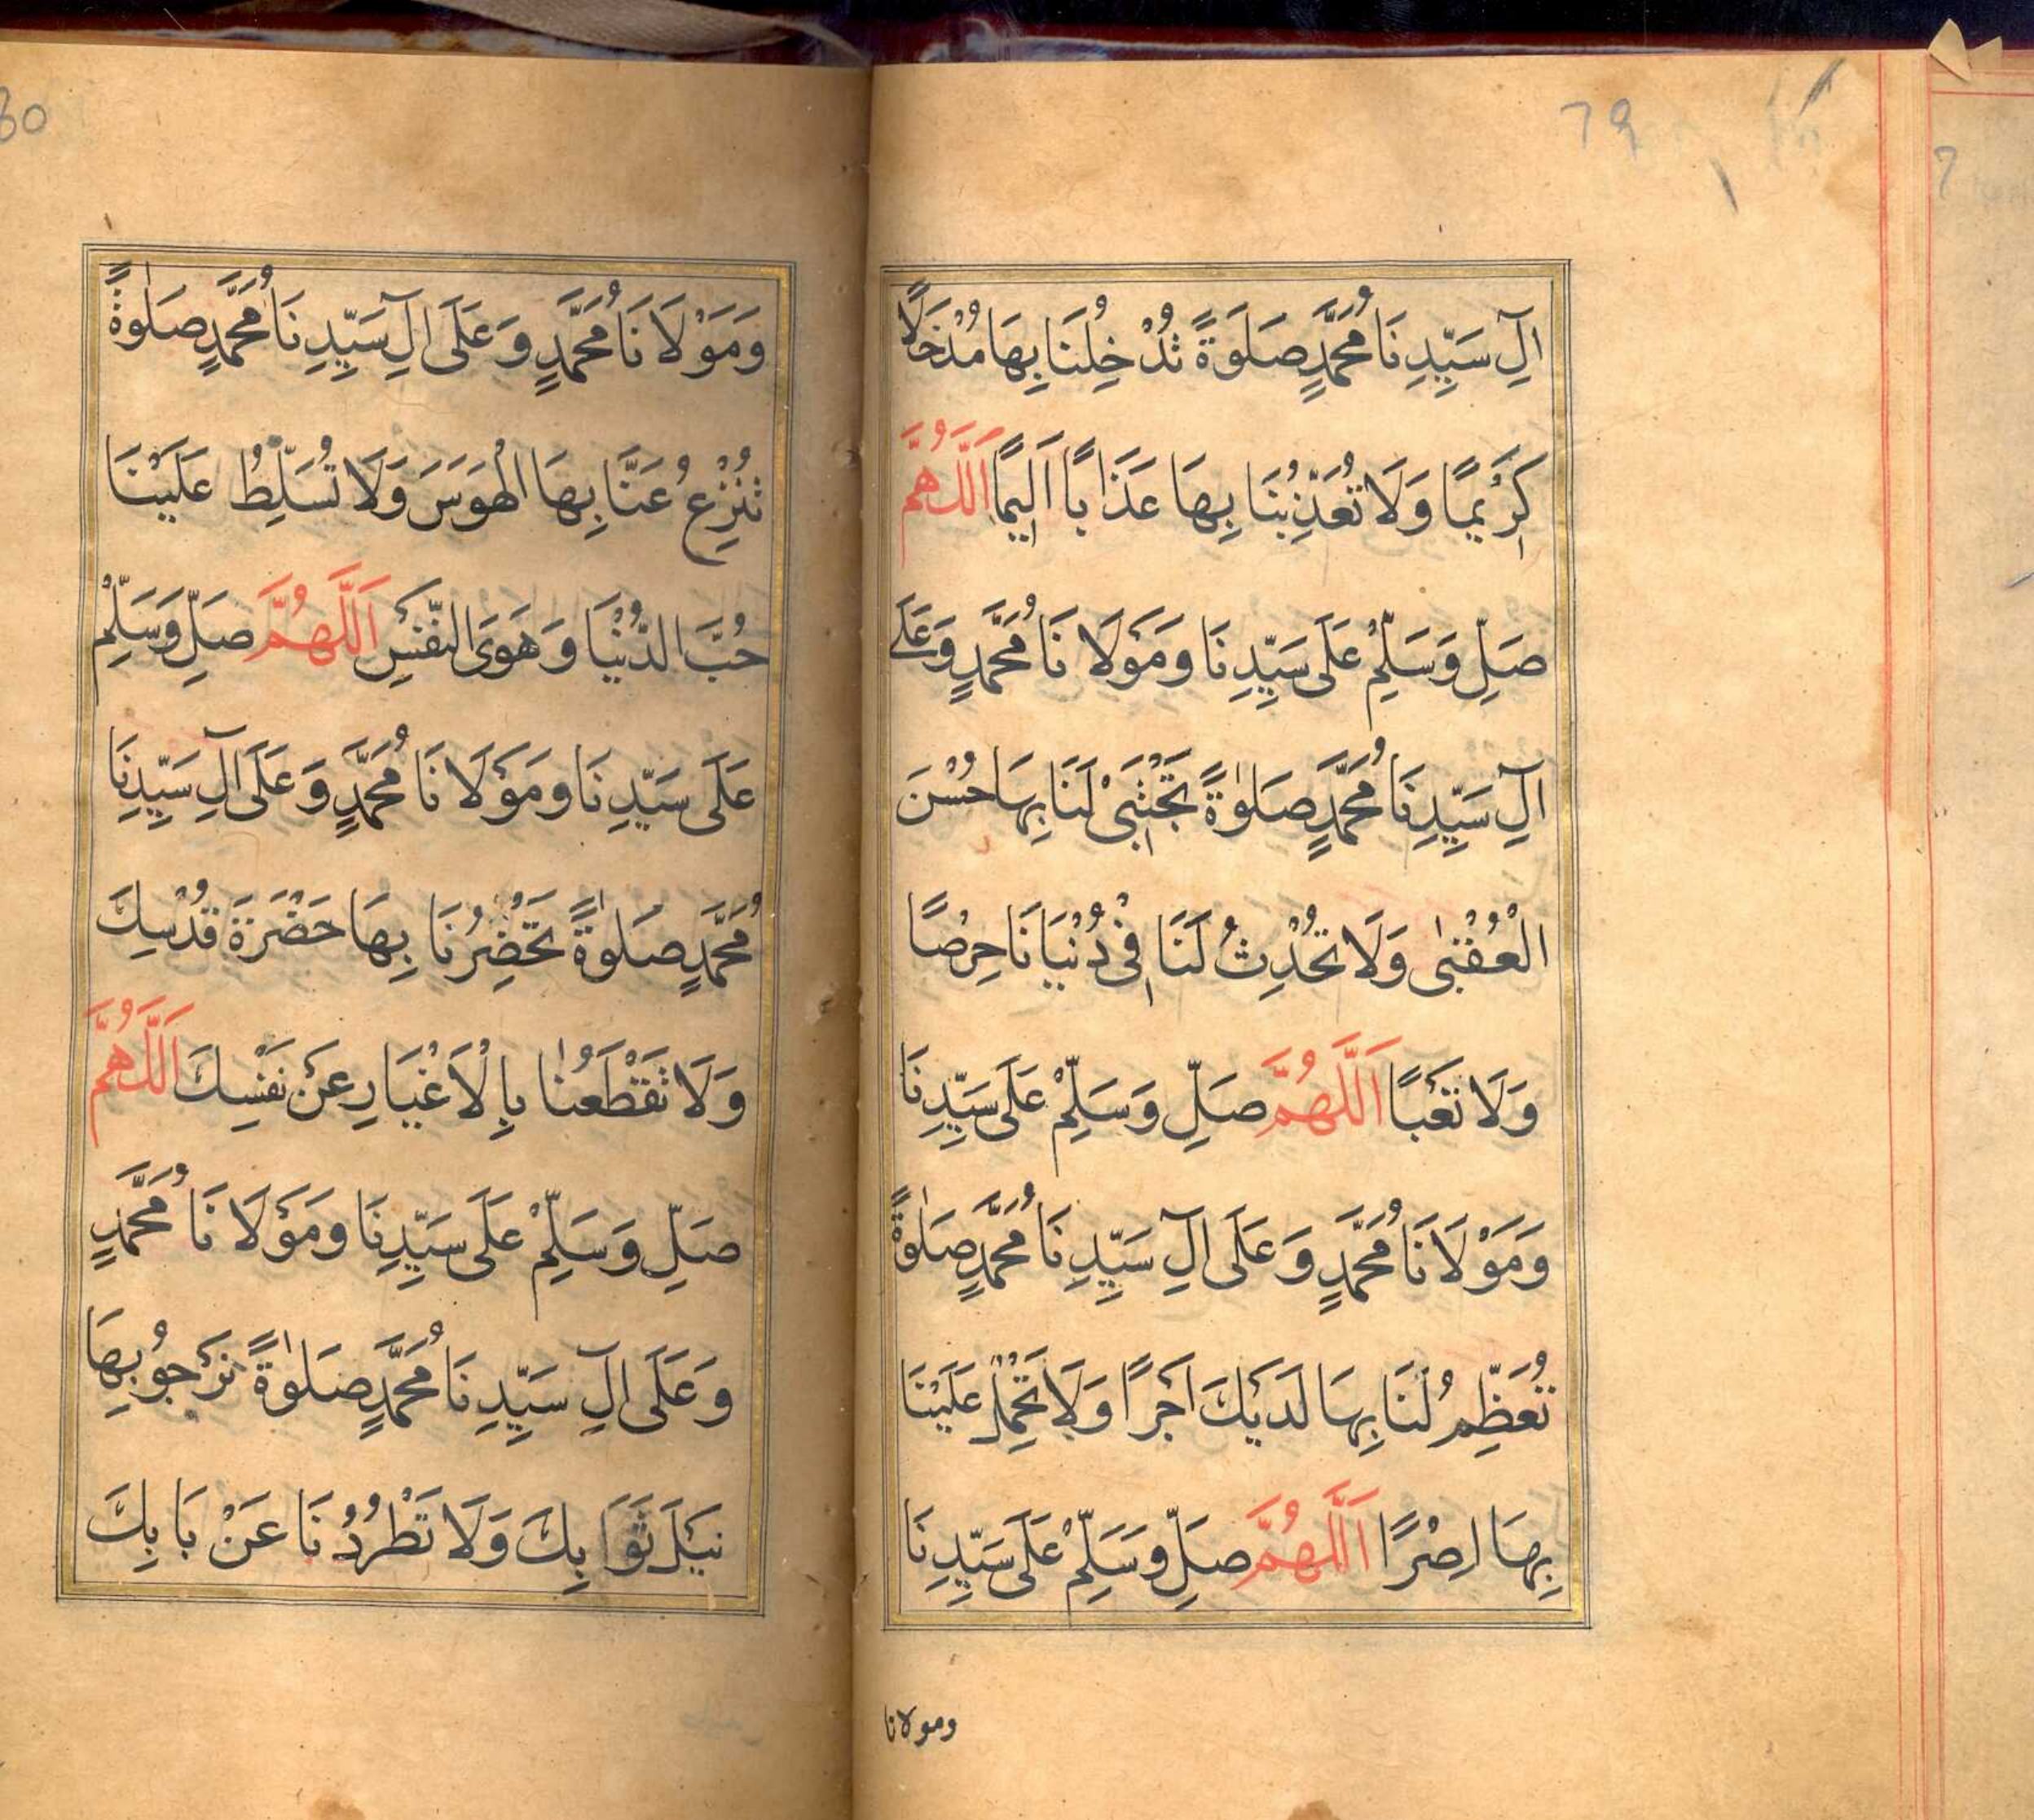 79
اٰلِ سَيِّدِنَا مُحَمَّدٍ صَلٰوةً تُدْخِلُنَا بِهَا مُدْخَلًا
كَرِيْمًا وَلَا تُعَذِّبُنَا بِهَا عَذَابًا اَلِيْمًا اَللّٰهُمَّ
صَلِّ وَسَلِّمْ عَلٰى سَيِّدِنَا وَمَوْلَانَا مُحَمَّدٍ وَعَلٰى
اٰلِ سَيِّدِنَا مُحَمَّدٍ صَلٰوةً تَجْتَبِىْ لَنَا بِهَا حُسْنَ
الْعُقْبٰى وَلَا تُحْدِثُ لَنَا فِىْ دُنْيَانَا حِرْصًا
وَلَا تَعَبًا اَللّٰهُمَّ صَلِّ وَسَلِّمْ عَلٰى سَيِّدِنَا
وَمَوْلَانَا مُحَمَّدٍ وَعَلَى اٰلِ سَيِّدِنَا مُحَمَّدٍ صَلٰوةً
تُعَظِّمُ لَنَا بِهَا لَدَيْكَ اَجْرًا وَلَا تَحْمِلْ عَلَيْنَا
بِهَا اِصْرًا اَللّٰهُمَّ صَلِّ وَسَلِّمْ عَلٰى سَيِّدِنَا
ومولانا
وَمَوْلَانَا مُحَمَّدٍ وَعَلَى اٰلِ سَيِّدِنَا مُحَمَّدٍ صَلٰوةً
تُنْزِعُ عَنَّا بِهَا الْهَوَسَ وَلَا تُسَلِّطُ عَلَيْنَا
حُبَّ الدُّنْيَا وَهَوَى النَّفْسِ اَللّٰهُمَّ صَلِّ وَسَلِّمْ
عَلٰى سَيِّدِنَا وَمَوْلَانَا مُحَمَّدٍ وَعَلَى اٰلِ سَيِّدِنَا
مُحَمَّدٍ صَلٰوةً تَحْضُرُنَا بِهَا حَضْرَةَ قُدْسِكَ
وَلَا تَقْطَعُنَا بِالْاَغْيَارِ عَنْ نَفْسِكَ اَللّٰهُمَّ
صَلِّ وَسَلِّمْ عَلٰى سَيِّدِنَا وَمَوْلَانَا مُحَمَّدٍ
وَعَلَى اٰلِ سَيِّدِنَا مُحَمَّدٍ صَلٰوةً نَرْجُوْ بِهَا
نَيْلَ ثَوَابِكَ وَلَا تَطْرُدُنَا عَنْ بَابِكَ